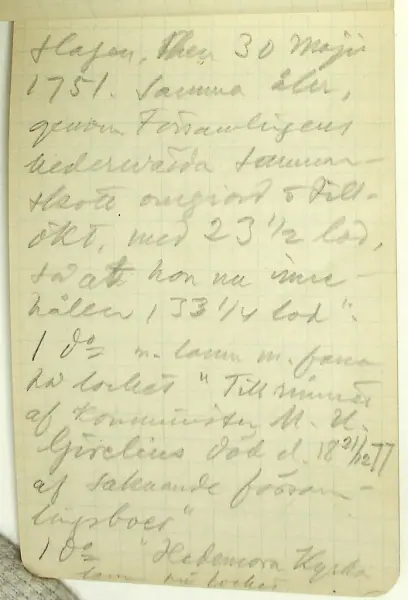 slagen, then 30 Maji
1751. Samma åhr,
genom Församlingens
Wederwärda samman-
skott omgiord o till-
ökt, med 23 1/2 lod,
så att hon nu inne-
håller 133 1/4 lod".
1 do m.
på locket "Till minne
af Komminister M. U.
Girelius död d. 18 21/12 77
af saknande försam-
lingsboer"
1 do "Hedemora Kyrka
locket